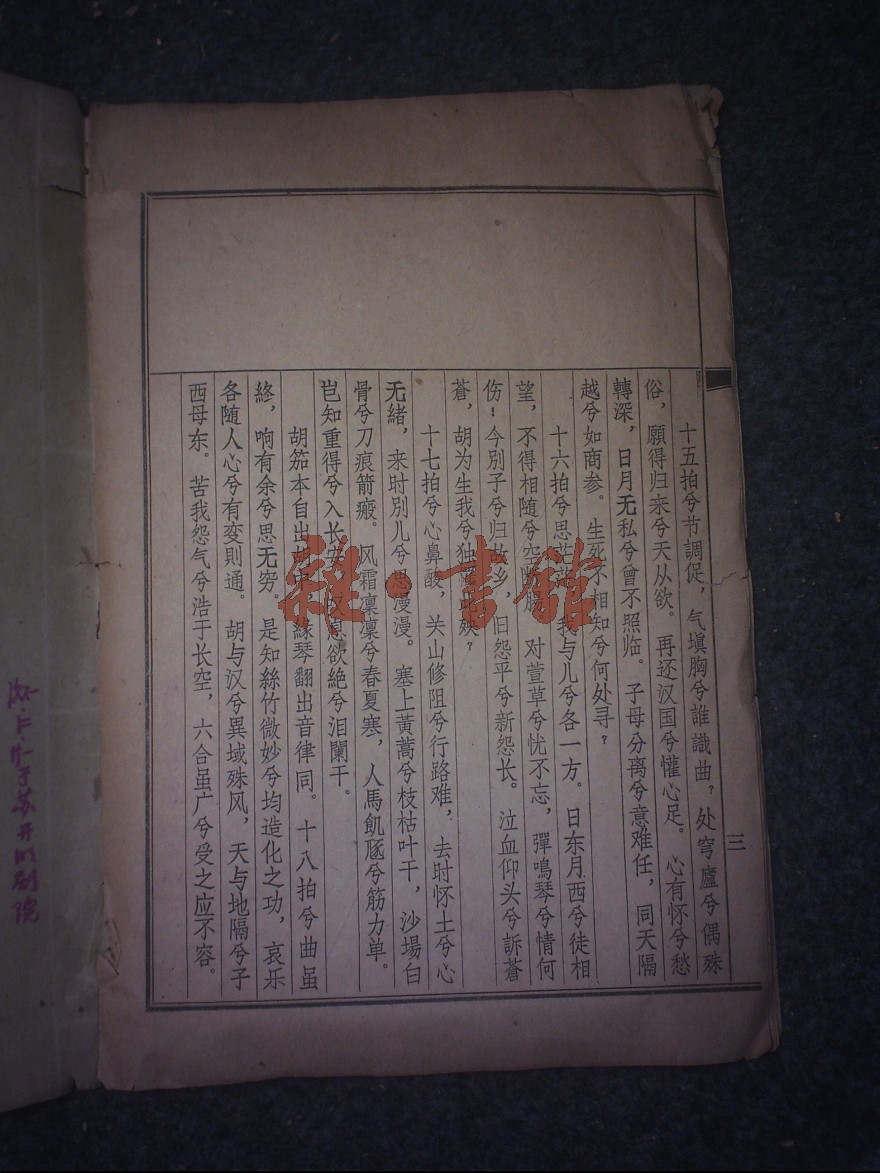 三
十五拍兮节調促，气塡胸兮誰識曲？处穹廬兮偶殊
俗，願得归来兮天从欲。再还汉国兮懽心足。心有怀兮愁
轉深，日月无私兮曾不照临。子母分离兮意难任，同天隔
越兮如商参。生死不相知兮何处寻？
十六拍兮思茫茫，我与儿兮各一方。日东月西兮徒相
望，不得相随兮空断腸。对萱草兮忧不忘，彈鳴琴兮情何
伤！今別子兮归故乡，旧怨平兮新怨长。泣血仰头兮訴蒼
蒼，胡为生我兮独罹此殃？
十七拍兮心鼻酸，关山修阻兮行路难，去时怀土兮心
无緒，来时別儿兮思漫漫。塞上黃蒿兮枝枯叶干，沙場白
骨兮刀痕箭瘢。风霜凜凜兮春夏寒，人馬飢豗兮筋力单。
岂知重得兮入长安，叹息欲絕兮泪闌干。
胡笳本自出胡中，緣琴翻出音律同。十八拍兮曲虽
終，响有余兮思无穷。是知絲竹微妙兮均造化之功，哀乐
各随人心兮有变則通。胡与汉兮異域殊风，天与地隔兮子
西母东。苦我怨气兮浩于长空，六合虽广兮受之应不容。
雜·書館
苏开明剧院